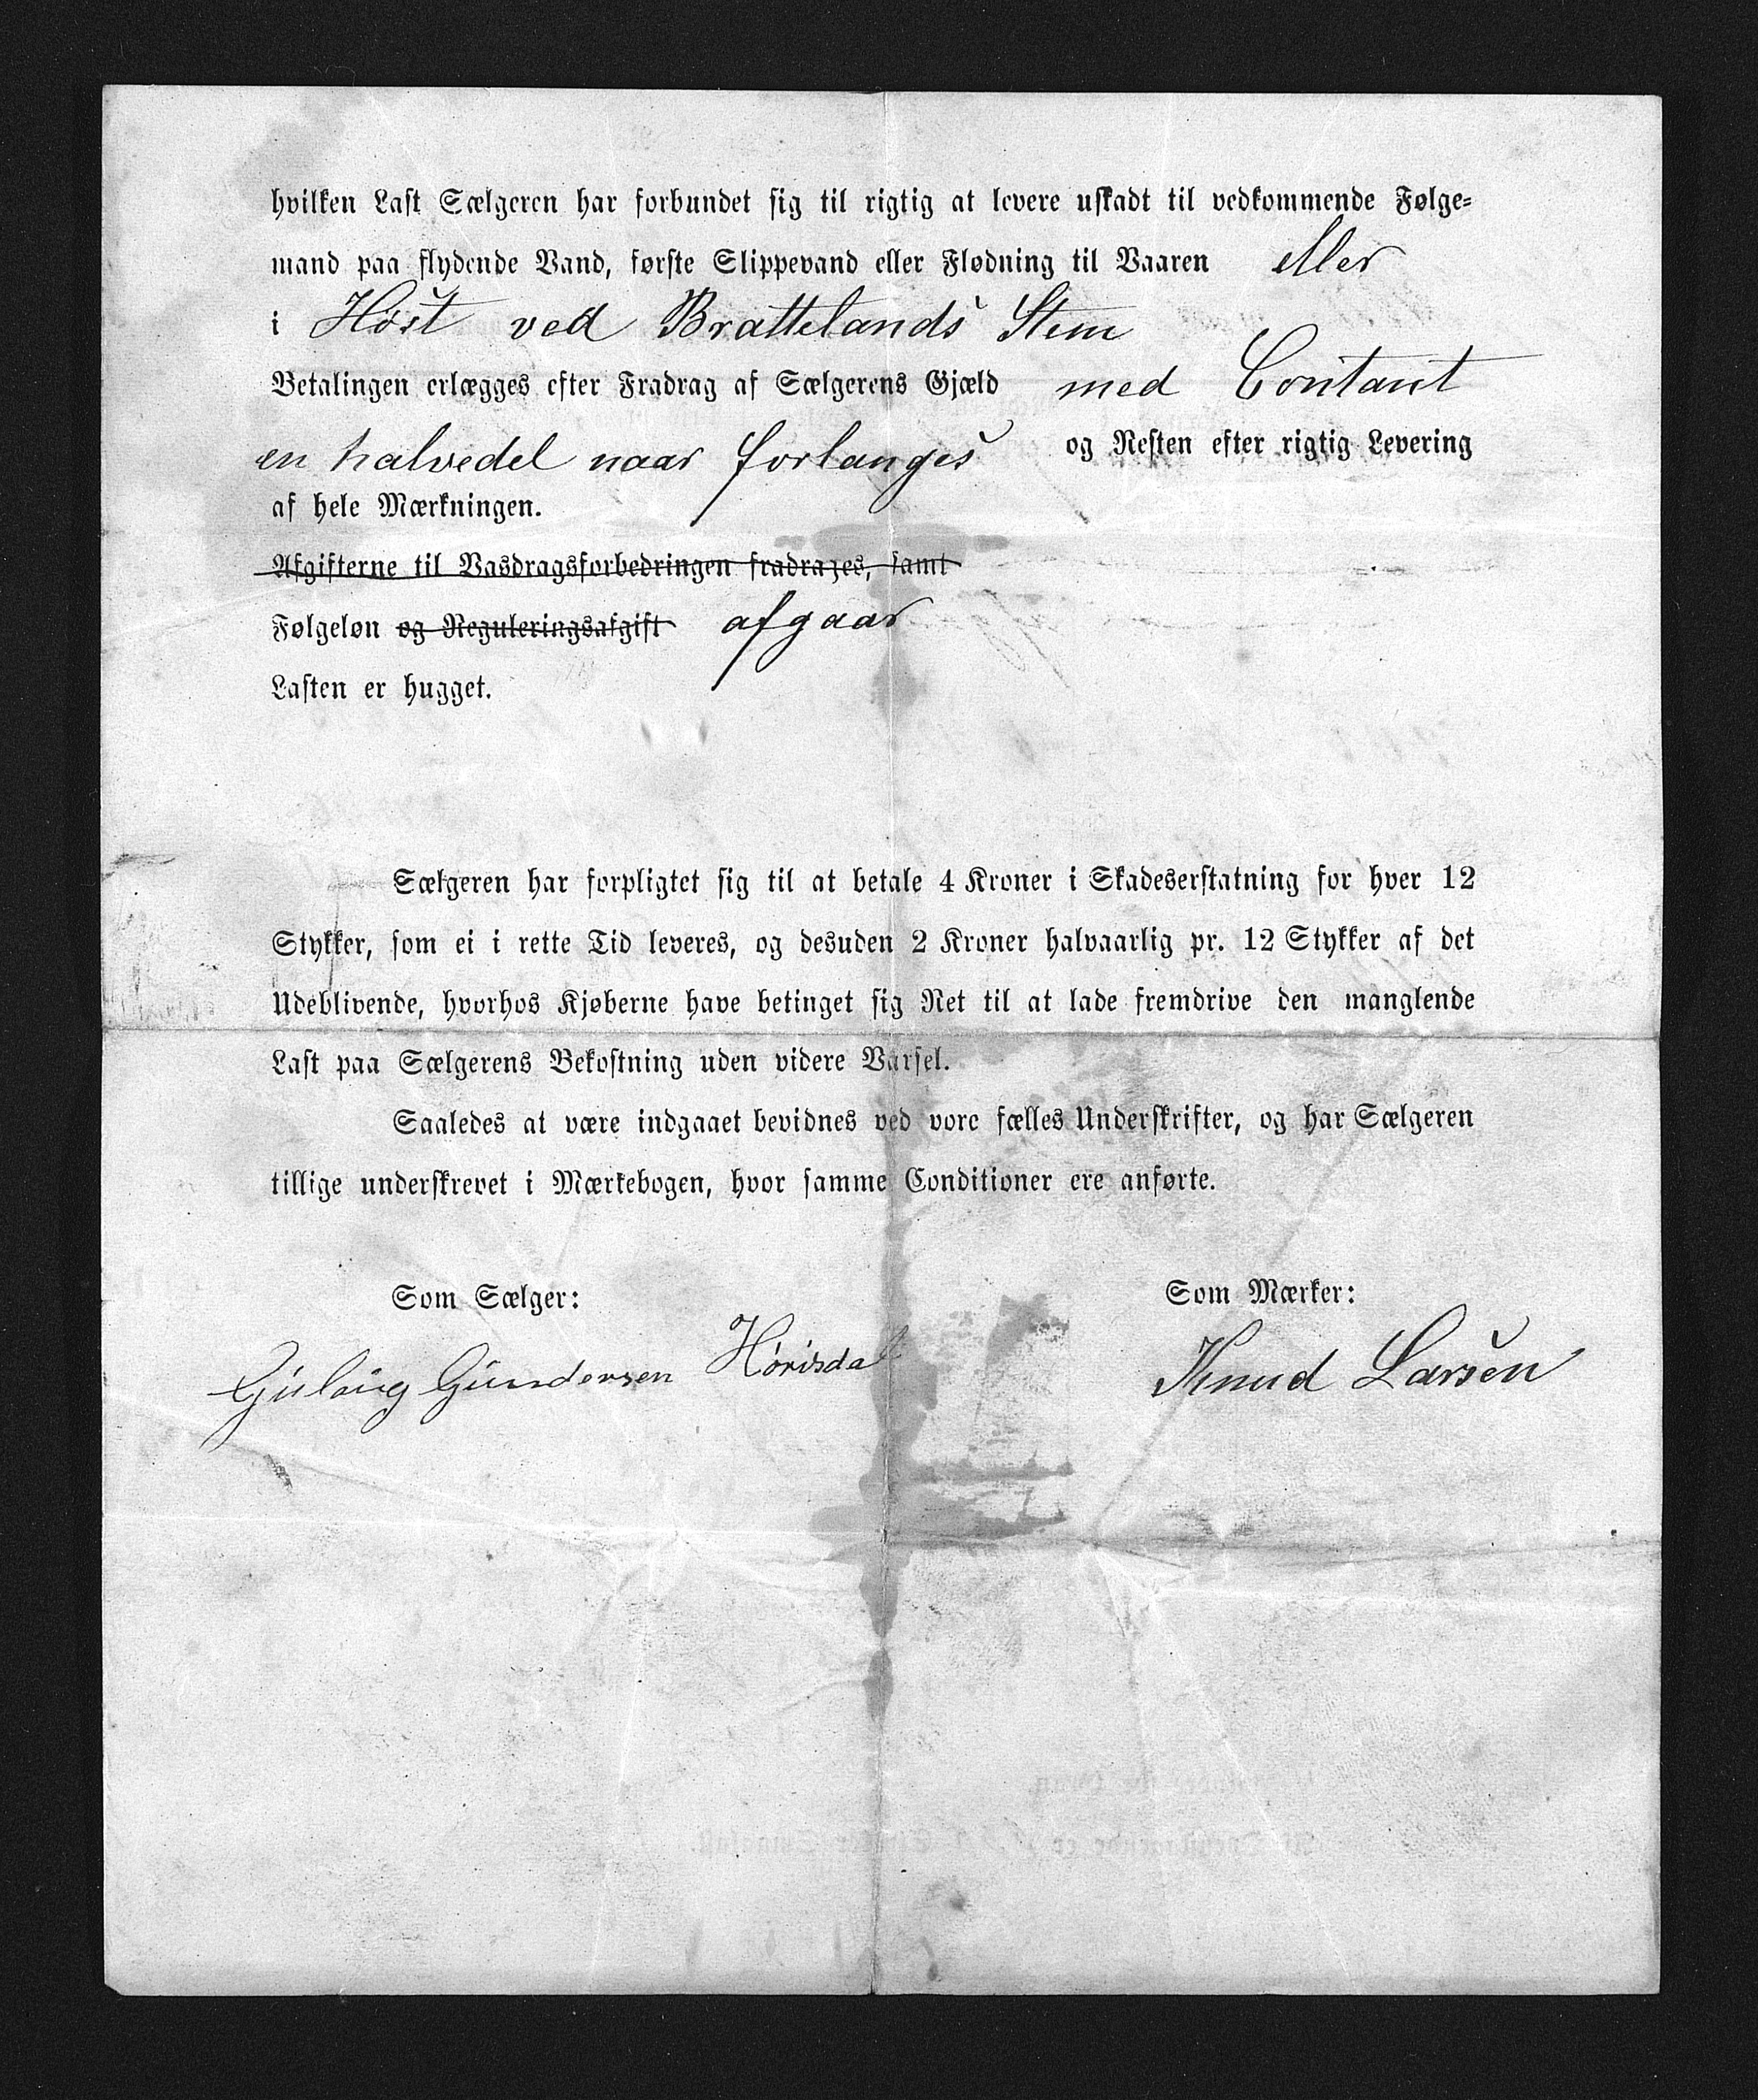 hvilken Last Sælgeren har forbundet sig til rigtig at levere uskadt til vedkommende Følge=
mand paa flydende Vand, første Slippevand eller Flødning til Vaaren eller
i Høst ved Brattelands Stem
Betalingen erlægges efter Fradrag af Sælgerens Gjæld med Contant
en halvedel naar forlanges og Resten efter rigtig Levering
af hele Mærkningen.
Afgifterne til Vasdragsforbedringen fradrages, samt
Følgeløn og Reguleringsafgift afgaar
Lasten er hugget.
Sælgeren har forpligtet sig til at betale 4 Kroner i Skadeserstatning for hver 12
Stykker, som ei i rette Tid leveres, og desuden 2 Kroner halvaarlig pr. 12 Stykker af det
Udeblivende, hvorhos Kjøberne have betinget sig Ret til at lade fremdrive den manglende
Last paa Sælgerens Bekostning uden videre Varsel.
Saaledes at være indgaaet bevidnes ved vore fælles Underskrifter, og har Sælgeren
tillige underskrevet i Mærkebogen, hvor samme Conditioner ere anførte.
Som Sælger: Som Mærker:
Gundersen Knud Larsen